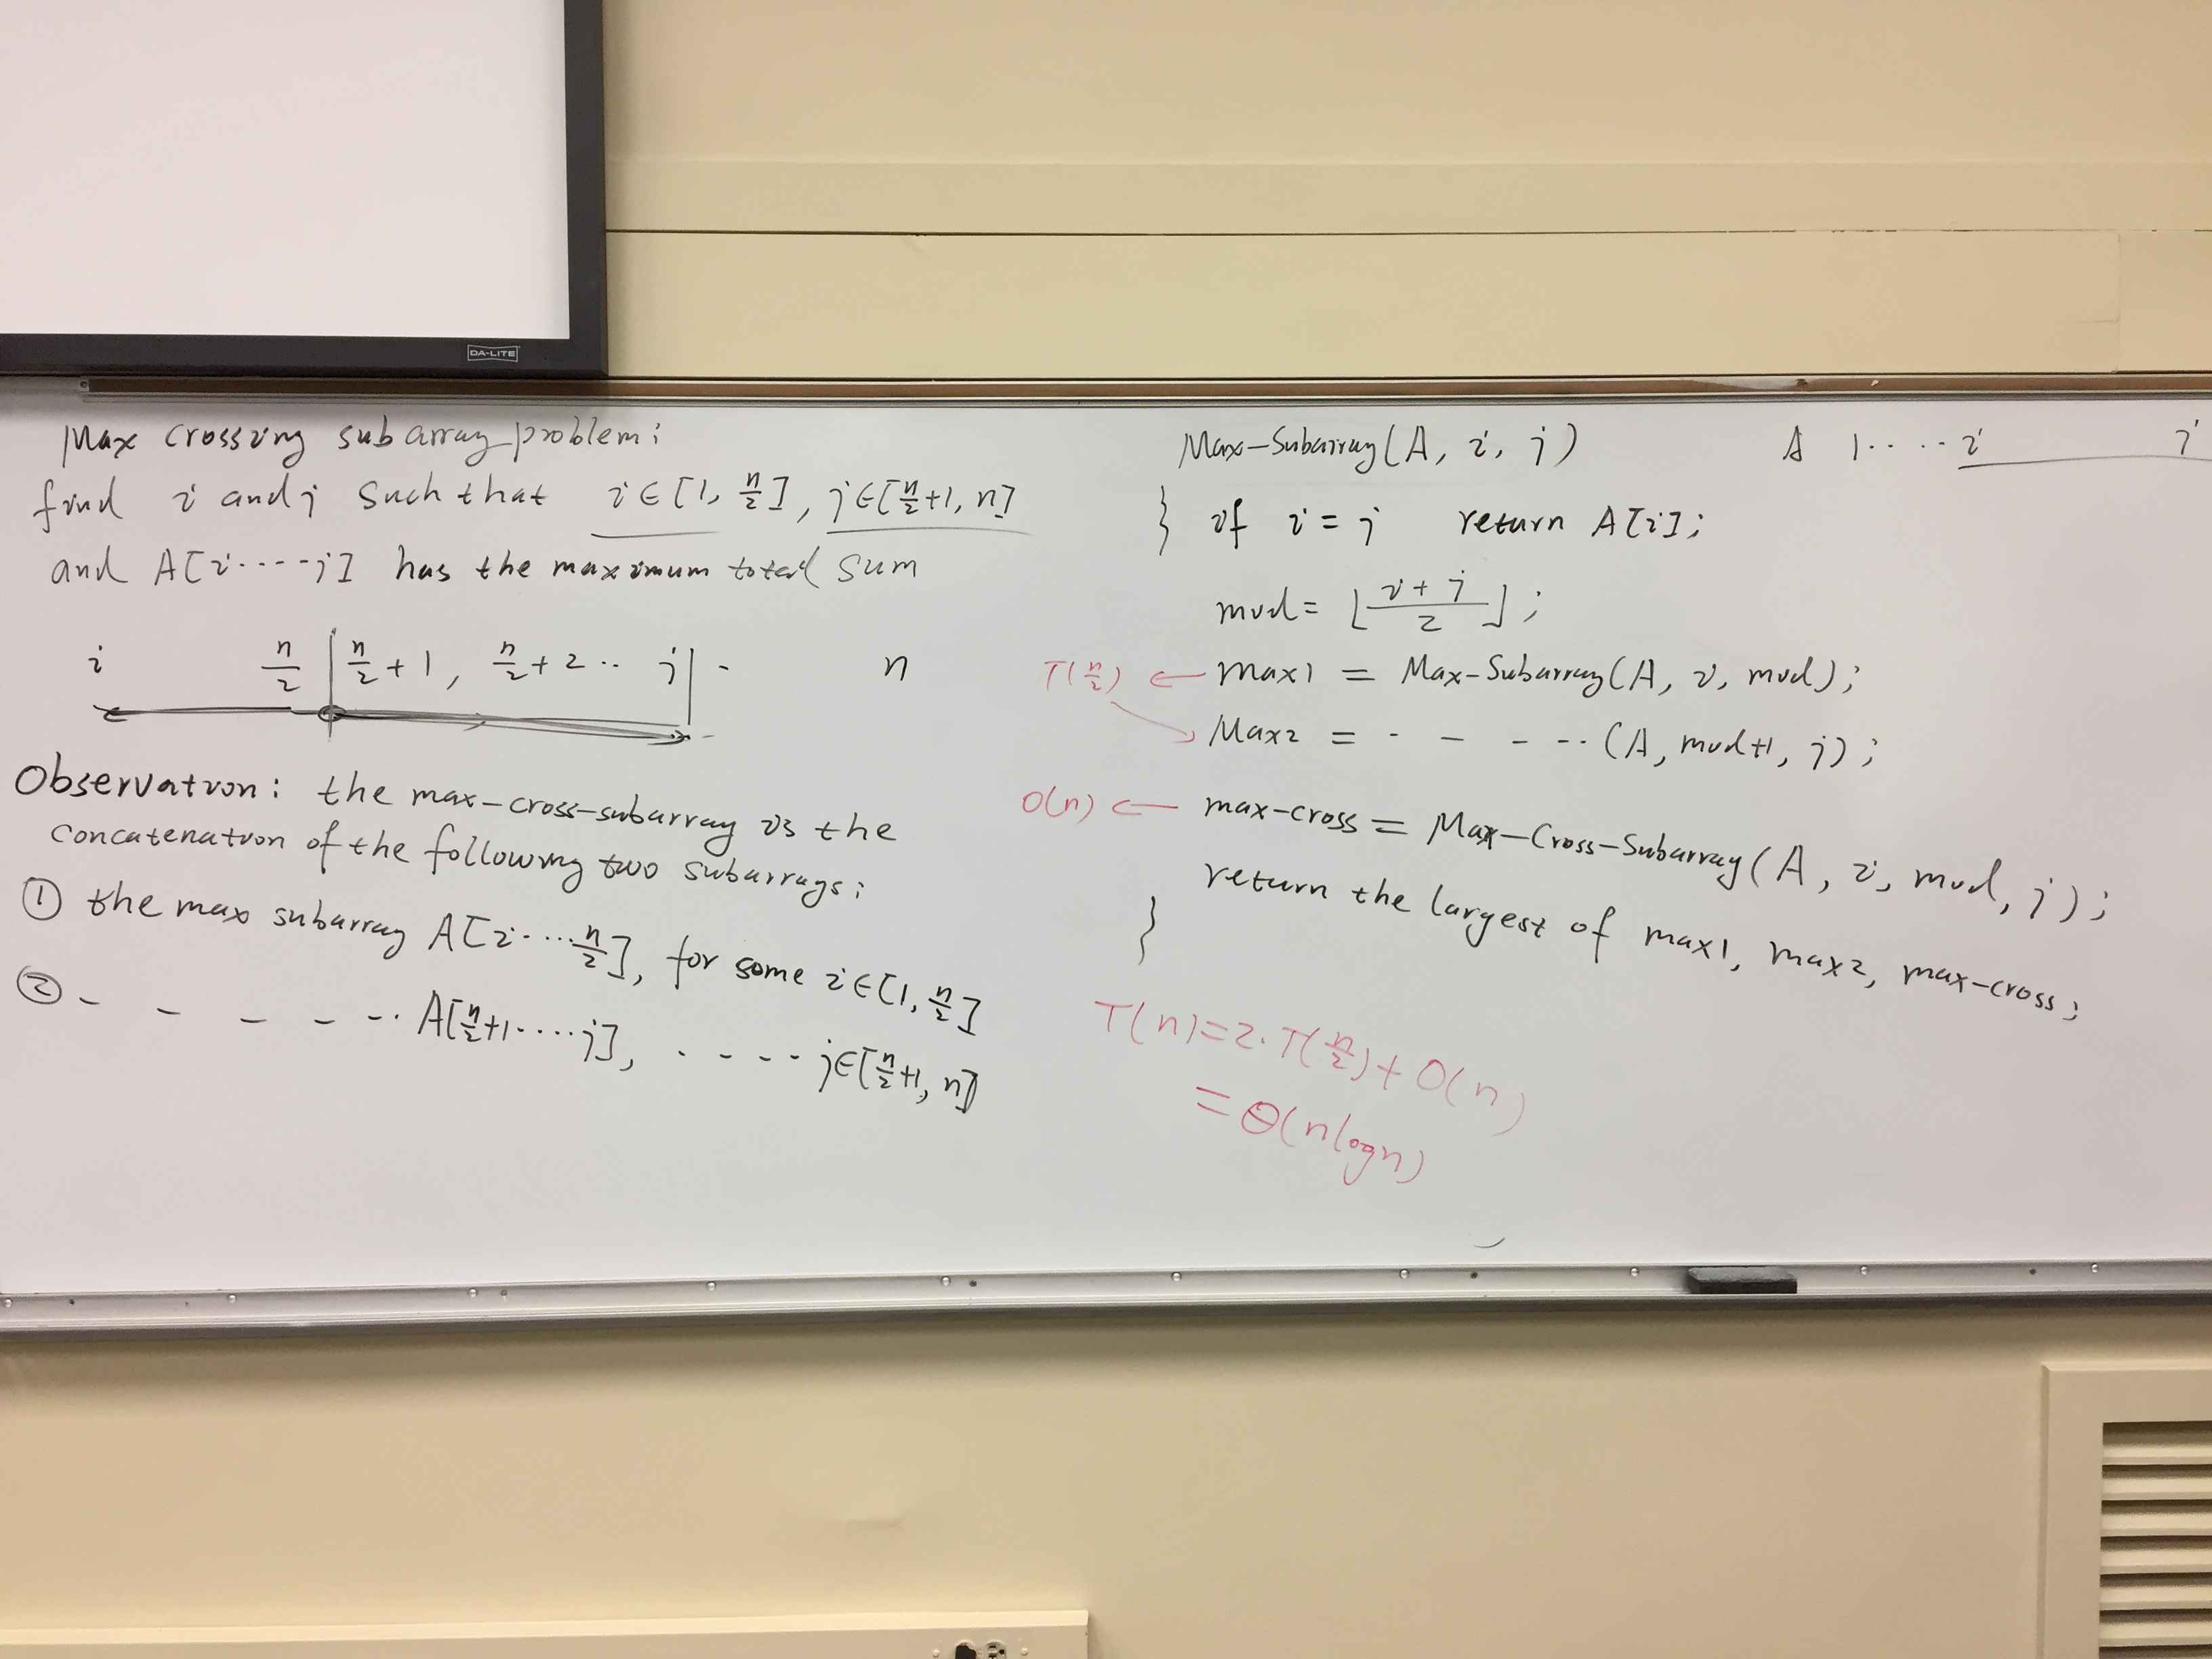 DA-LITE
Max crossing subarray problem:
find i and j such that i∈[1, n/2], j∈[n/2+1, n]
and A[i----j] has the maximum total sum
i n/2 | n/2+1, n/2+2 .. j | - n
Observation: the max-cross-subarray is the
concatenation of the following two subarrays:
① the max subarray A[i....n/2], for some i∈[1, n/2]
② - - - - -.. A[n/2+1....j], . - - - - j∈[n/2+1, n]
Max-Subarray(A, i, j)
{ if i = j return A[i];
mid = ⌊(i+j)/2⌋;
T(n/2) ← max1 = Max-Subarray(A, i, mid);
Max2 = - - - -.. (A, mid+1, j);
O(n) ← max-cross = Max-Cross-Subarray(A, i, mid, j);
return the largest of max1, max2, max-cross;
}
T(n)=2·T(n/2)+O(n)
=Θ(nlogn)
A 1.....i j